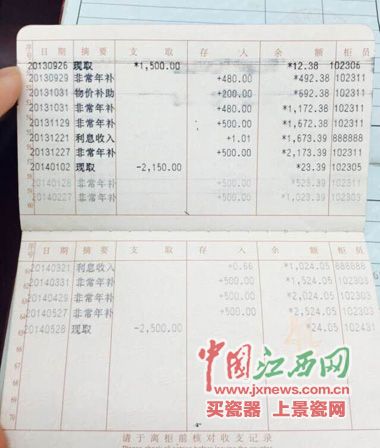 序号 日期 摘要 支取 存入 余额 柜员
20130926 现取 *1,500.00 *12.38 102306
20130929 非常年补 +480.00 *492.38 102311
20131031 物价补助 +200.00 *692.38 102311
20131031 非常年补 +480.00 *1,172.38 102311
20131129 非常年补 +500.00 *1,672.38 102311
20131221 利息收入 +1.01 *1,673.39 888888
20131227 非常年补 +500.00 *2,173.39 102311
20140102 现取 -2,150.00 *23.39 102305
20140128 非常年补 +500.00 *523.39 102311
20140227 非常年补 +500.00 *1,023.39 102311
序号 日期 摘要 支取 存入 余额 柜员
20140321 利息收入 +0.66 *1,024.05 888888
20140331 非常年补 +500.00 *1,524.05 102303
20140429 非常年补 +500.00 *2,024.05 102303
20140527 非常年补 +500.00 *2,524.05 102303
20140528 现取 -2,500.00 *24.05 102431
中国江西网
www.jxnews.com.cn
买瓷器 上景瓷网
请于离柜前核对收支记录